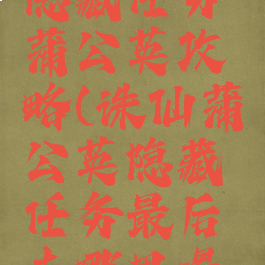 隐藏任务
蒲公英攻
略(诛仙蒲
公英隐藏
任务最后